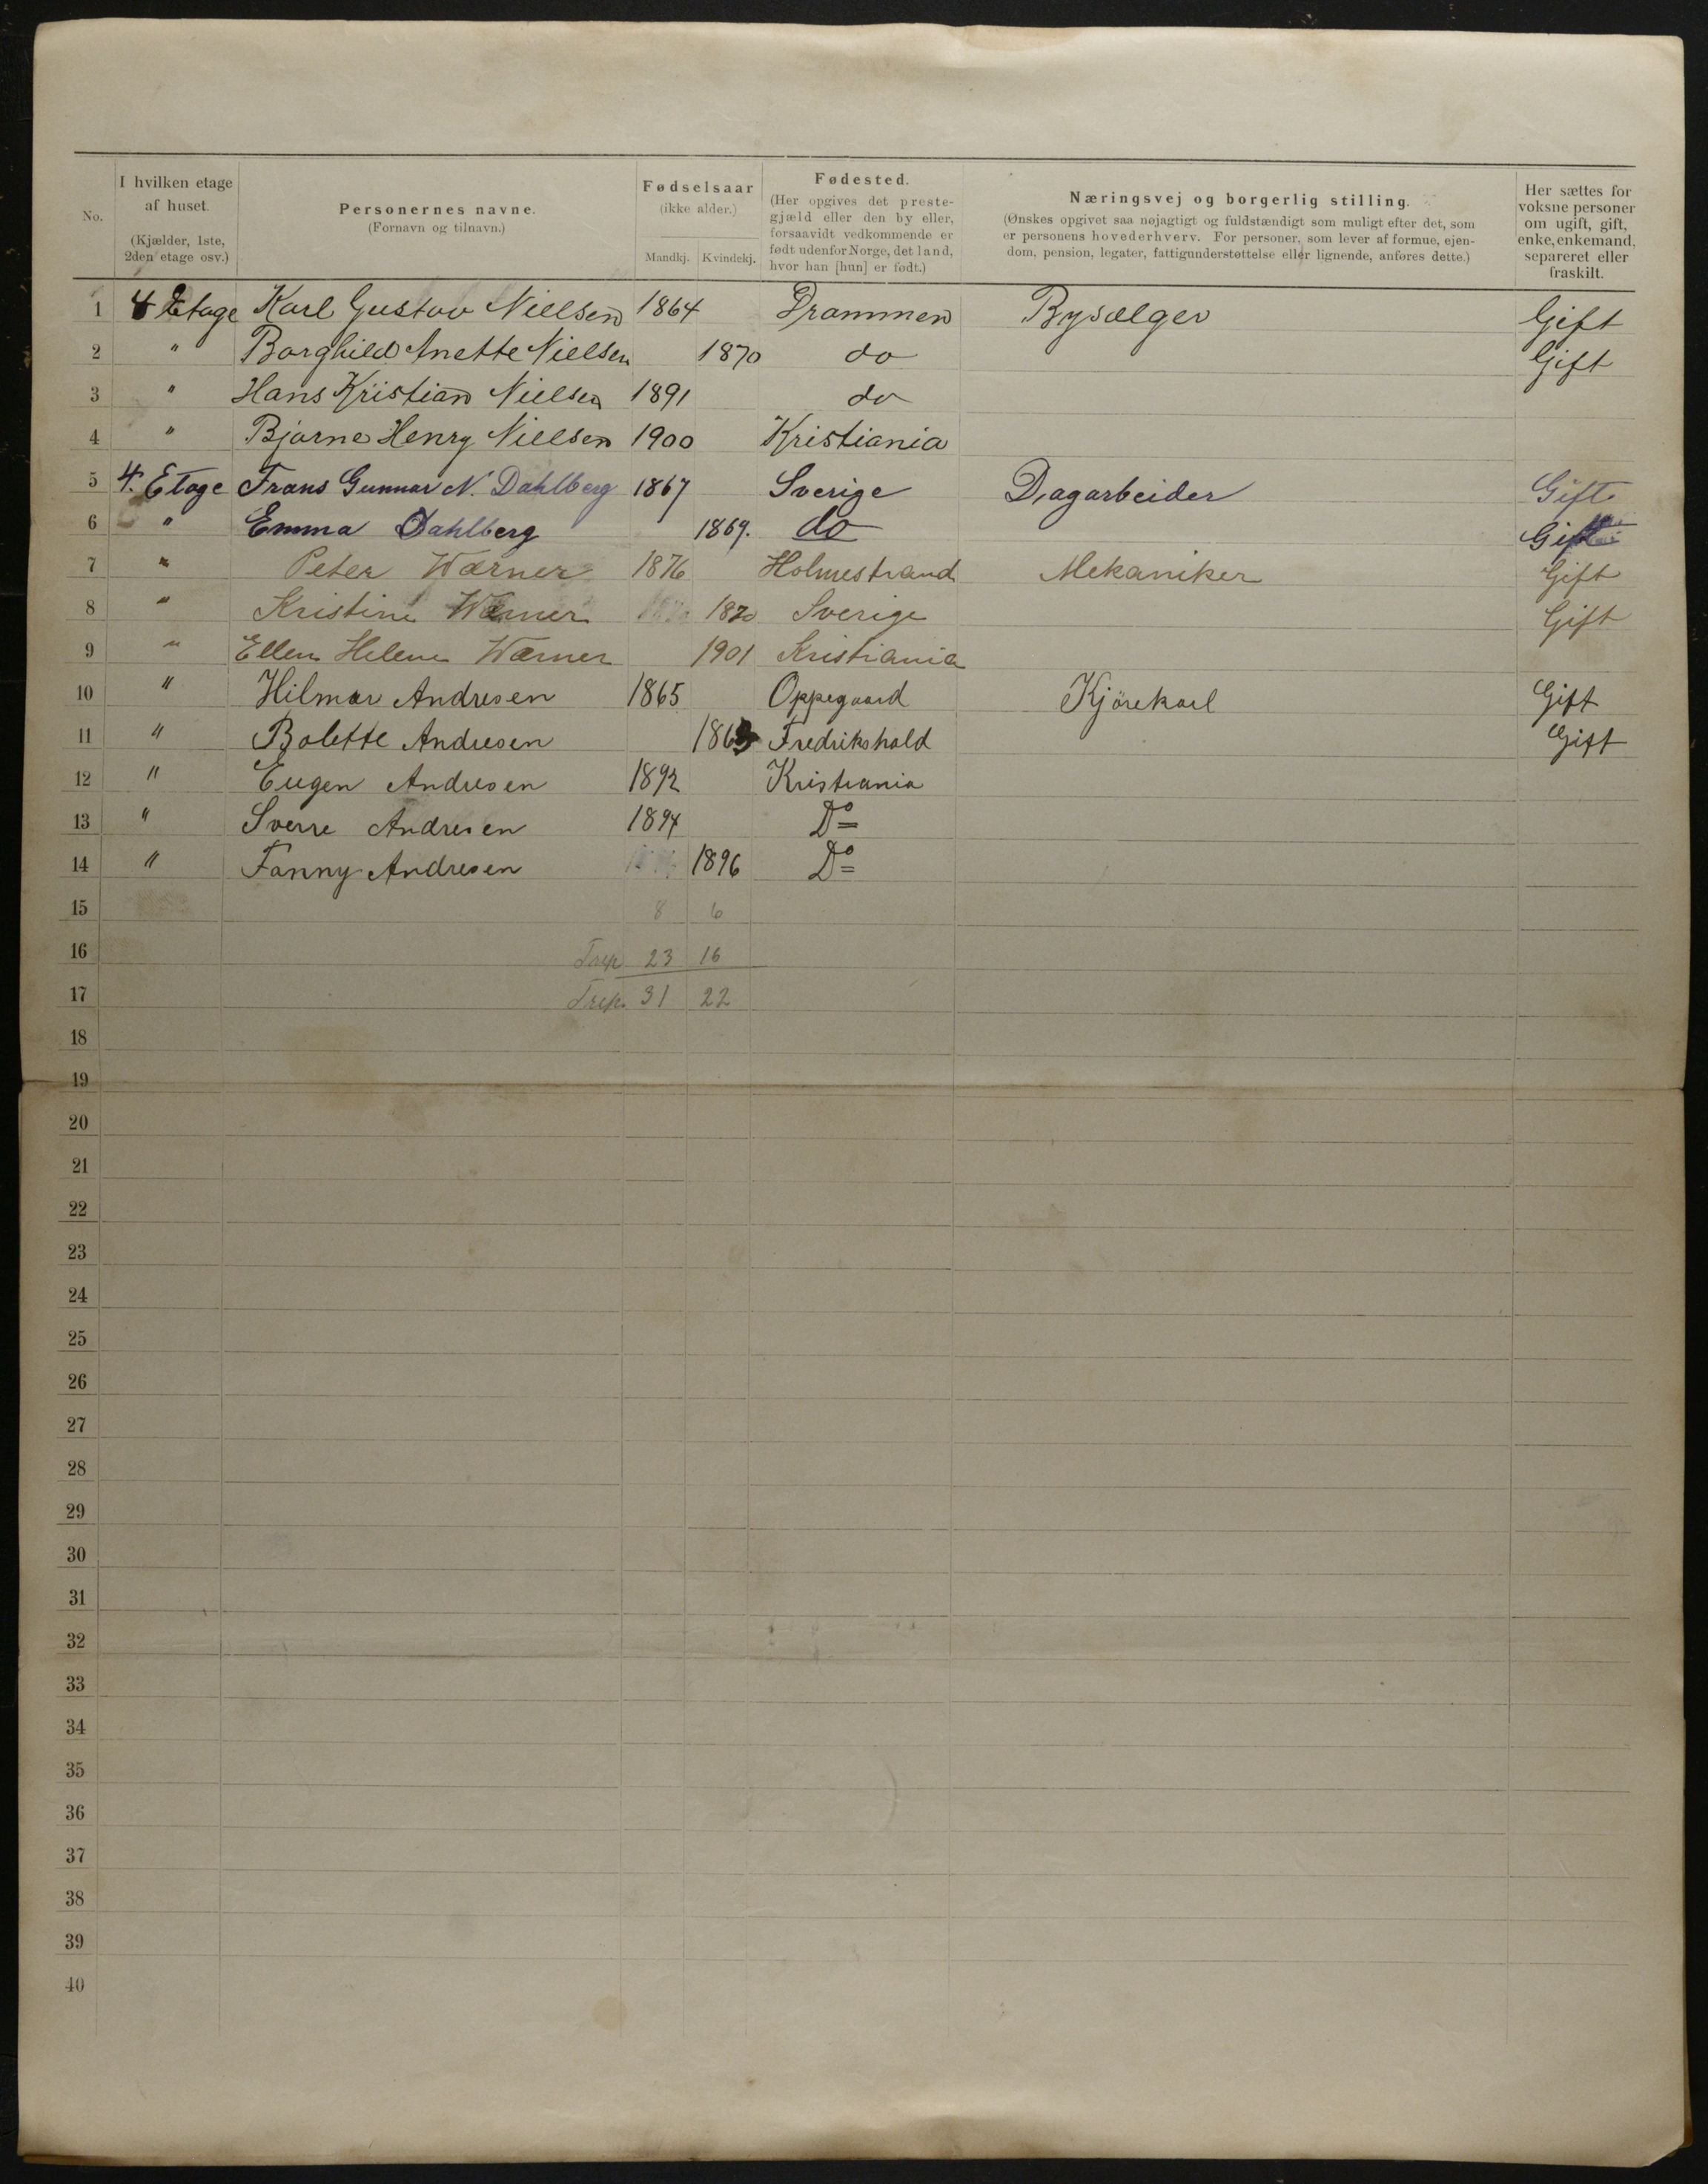 No.
I hvilken etage
af huset.
(Kjælder, 1ste,
2den etage osv.)
Personernes navne.
(Fornavn og tilnavn.)
Fødselsaar
(ikke alder.)
Mandkj. Kvindekj.
Fødested.
(Her opgives det preste-
gjæld eller den by eller,
forsaavidt vedkommende er
født udenfor Norge, det land,
hvor han [hun] er født.)
Næringsvej og borgerlig stilling.
(Ønskes opgivet saa nøjagtigt og fuldstændigt som muligt efter det, som
er personens hovederhverv. For personer, som lever af formue, ejen-
dom, pension, legater, fattigunderstøttelse eller lignende, anføres dette.)
Her sættes for
voksne personer
om ugift, gift,
enke, enkemand,
separeret eller
fraskilt.
1 4 Etage Karl Gustav Nielsen 1864 Drammen Bysælger Gift
2 " Borghild Anette Nielsen 1870 do Gift
3 " Hans Kristian Nielsen 1891 do
4 " Bjarne Henry Nielsen 1900 Kristiania
5 4. Etage Frans Gunnar N. Dahlberg 1867 Sverige Dagarbeider Gift
6 " Emma Dahlberg 1869. do Gift
7 " Peter Wærner 1876 Holmestrand Mekaniker Gift
8 " Kristine Wærner 1870 Sverige Gift
9 " Ellen Helene Wærner 1901 Kristiania
10 " Hilmar Andresen 1865 Oppegaard Kjörekarl Gift
11 " Bolette Andresen 1863 Fredrikshald Gift
12 " Eugen Andresen 1892 Kristiania
13 " Sverre Andresen 1894 Do
14 " Fanny Andresen 1896 Do
15 8 6
16 23 16
17 31 22
18
19
20
21
22
23
24
25
26
27
28
29
30
31
32
33
34
35
36
37
38
39
40